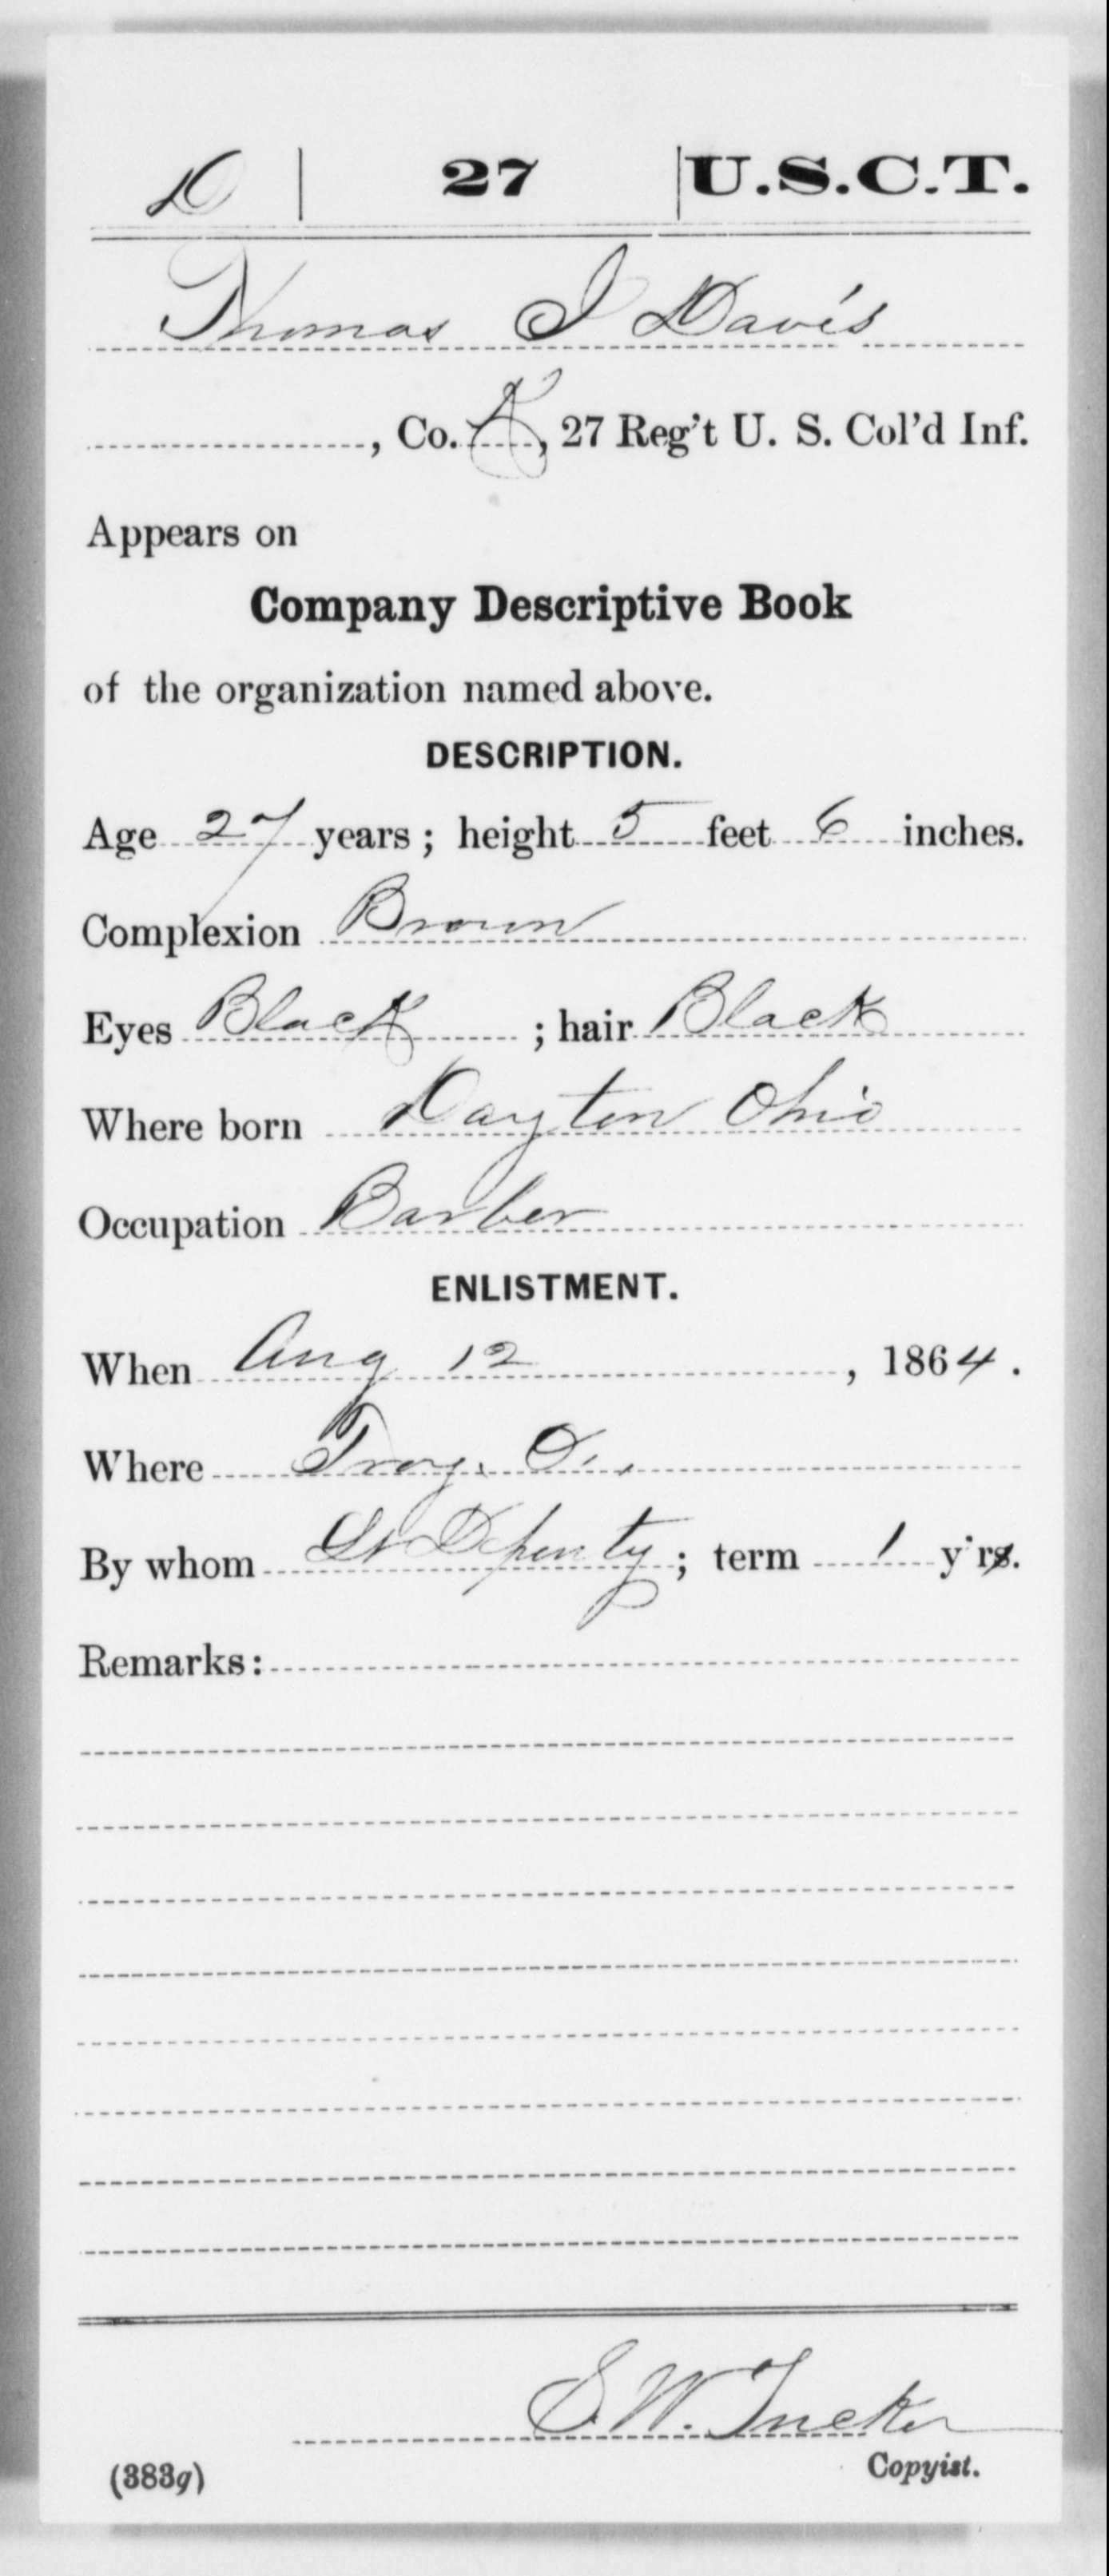 D | 27 | U.S.C.T.
Thomas J Davis
, Co. K, 27 Reg't U. S. Col'd Inf.
Appears on
Company Descriptive Book
of the organization named above.
DESCRIPTION.
Age 27 years; height 5 feet 6 inches.
Complexion Brown
Eyes Black; hair Black
Where born Dayton Ohio
Occupation Barber
ENLISTMENT.
When Aug 12, 1864.
Where Troy. O..
By whom ; term 1 y'rs.
Remarks:
S. W. Tucker
Copyist.
(383g)